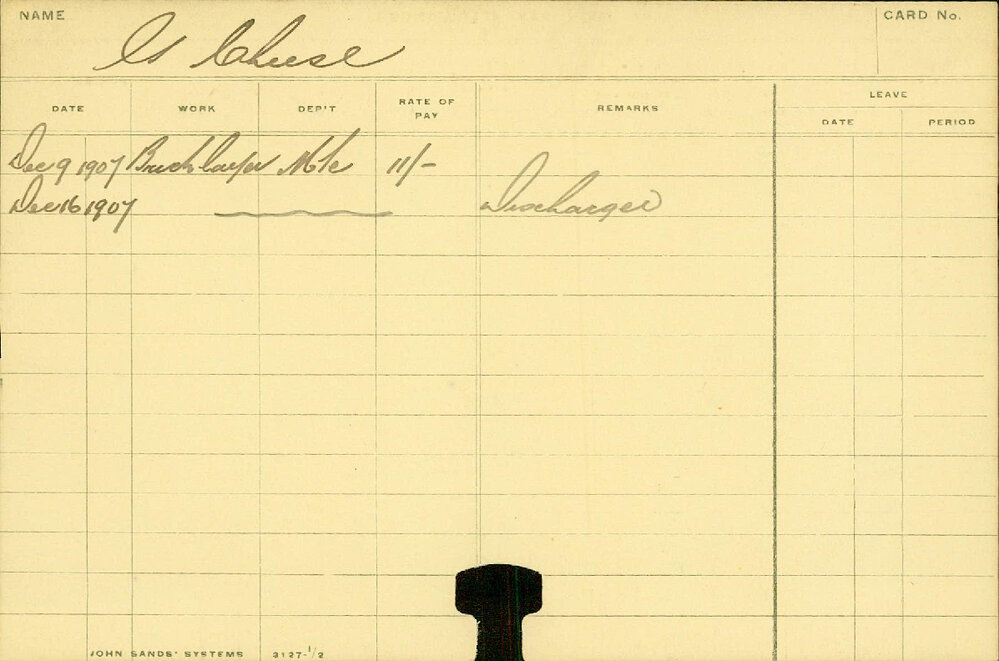 NAME
G Cheese
CARD No.
DATE WORK DEP'T RATE OF PAY REMARKS LEAVE
DATE PERIOD
Dec 9 1907 Bricklayer Mtce 11/-
Dec 16 1907 Discharged
JOHN SANDS' SYSTEMS 3127-1/2